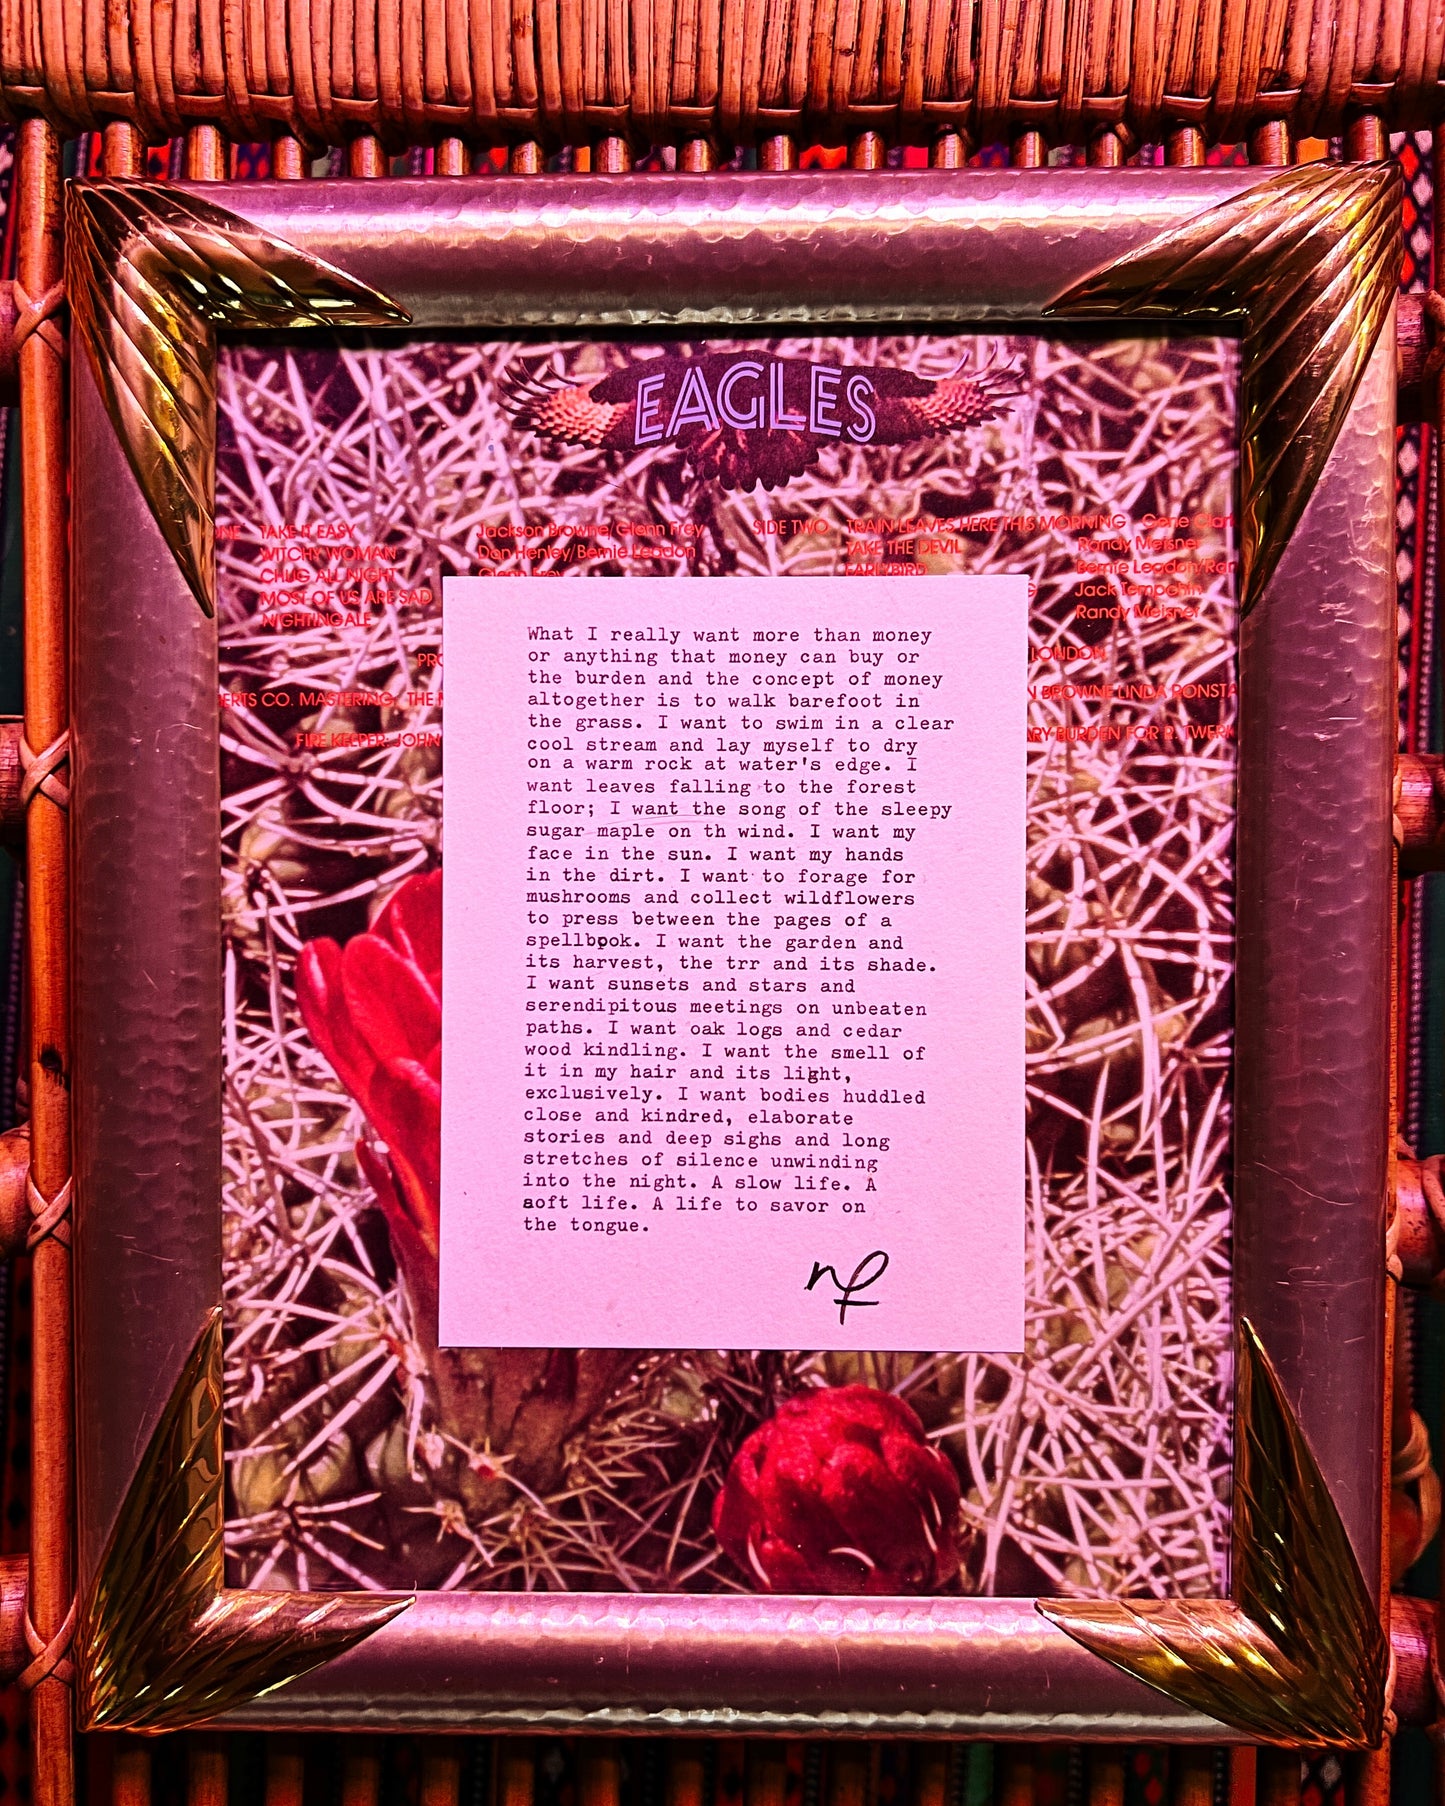 EAGLES
TAKE IT EASY Jackson Browne/Glenn Frey
WITCHY WOMAN Don Henley/Bernie Leadon
CHUG ALL NIGHT Glenn Frey
MOST OF US ARE SAD
NIGHTINGALE
SIDE TWO TRAIN LEAVES HERE THIS MORNING Gene Clar
TAKE THE DEVIL Randy Meisner
EARLYBIRD Bernie Leadon/Ran
G Jack Tempchin
Randy Meisner
PRO
LONDON
ERTS CO. MASTERING: THE M
N BROWNE LINDA RONSTA
FIRE KEEPER: JOHN
ARY BURDEN FOR R. TWERK
What I really want more than money
or anything that money can buy or
the burden and the concept of money
altogether is to walk barefoot in
the grass. I want to swim in a clear
cool stream and lay myself to dry
on a warm rock at water's edge. I
want leaves falling to the forest
floor; I want the song of the sleepy
sugar maple on th wind. I want my
face in the sun. I want my hands
in the dirt. I want to forage for
mushrooms and collect wildflowers
to press between the pages of a
spellbook. I want the garden and
its harvest, the trr and its shade.
I want sunsets and stars and
serendipitous meetings on unbeaten
paths. I want oak logs and cedar
wood kindling. I want the smell of
it in my hair and its light,
exclusively. I want bodies huddled
close and kindred, elaborate
stories and deep sighs and long
stretches of silence unwinding
into the night. A slow life. A
soft life. A life to savor on
the tongue.
nf